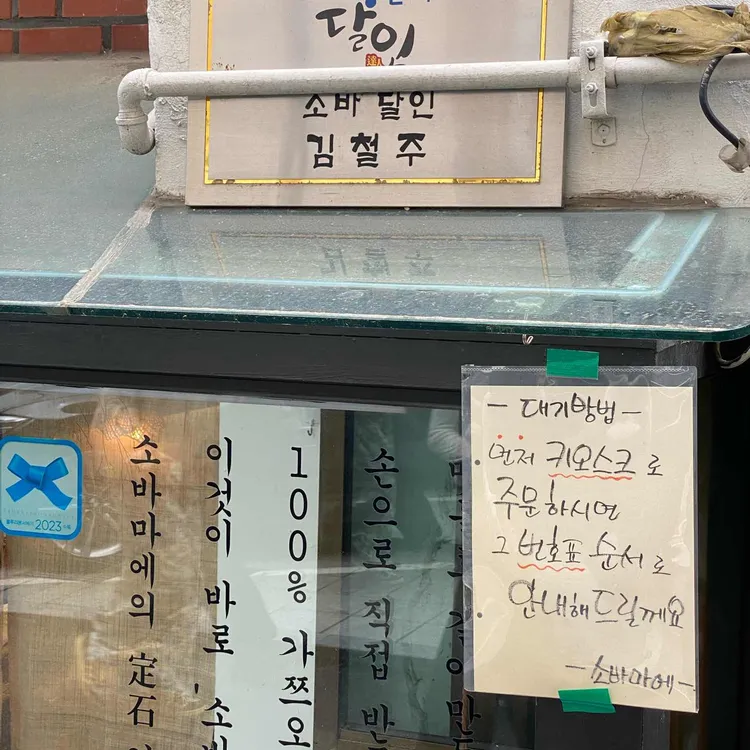 달인
소바 달인
김철주
- 대기방법 -
먼저 키오스크로
주문하시면
그 번호표 순서로
안내해 드릴께요
- 소바마에 -
손으로 직접
100% 가쯔오
이것이 바로 '소바
소바마에의 定石
2023